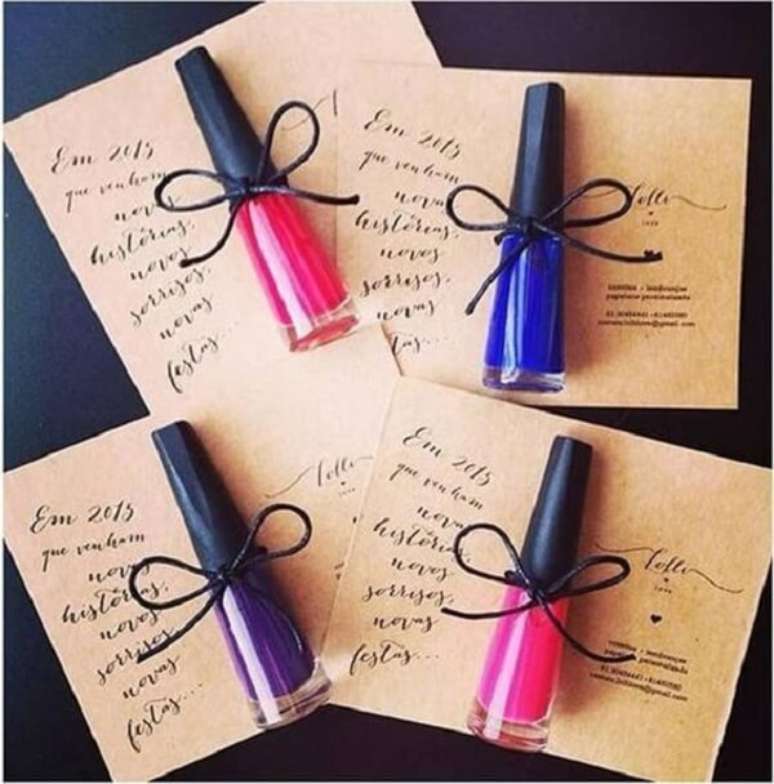 Em 2015
que venham
novas
histórias,
novos
sorrisos,
novas
festas...
Em 2015
que venham
novas
histórias,
novos
sorrisos,
novas
festas...
Lolli
love
papelaria personalizada
Em 2015
que venham
novas
histórias,
novos
sorrisos,
novas
festas...
Lolli
love
Em 2015
que venham
novas
histórias,
novos
sorrisos,
novas
festas...
Lolli
love
papelaria personalizada